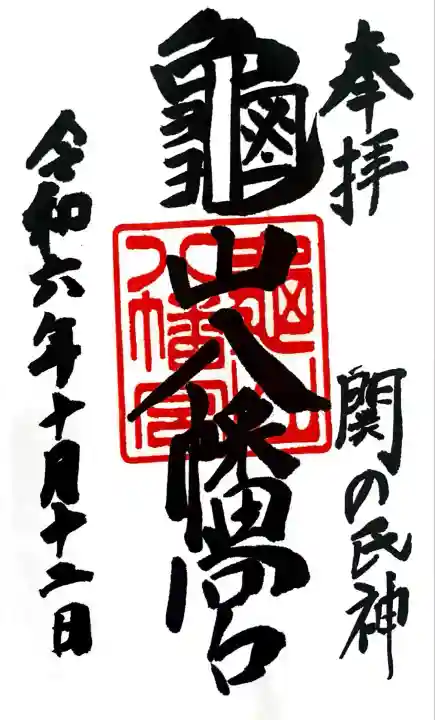 奉拝
関の氏神
龜山八幡宮
龜山八幡宮
令和六年十月十二日